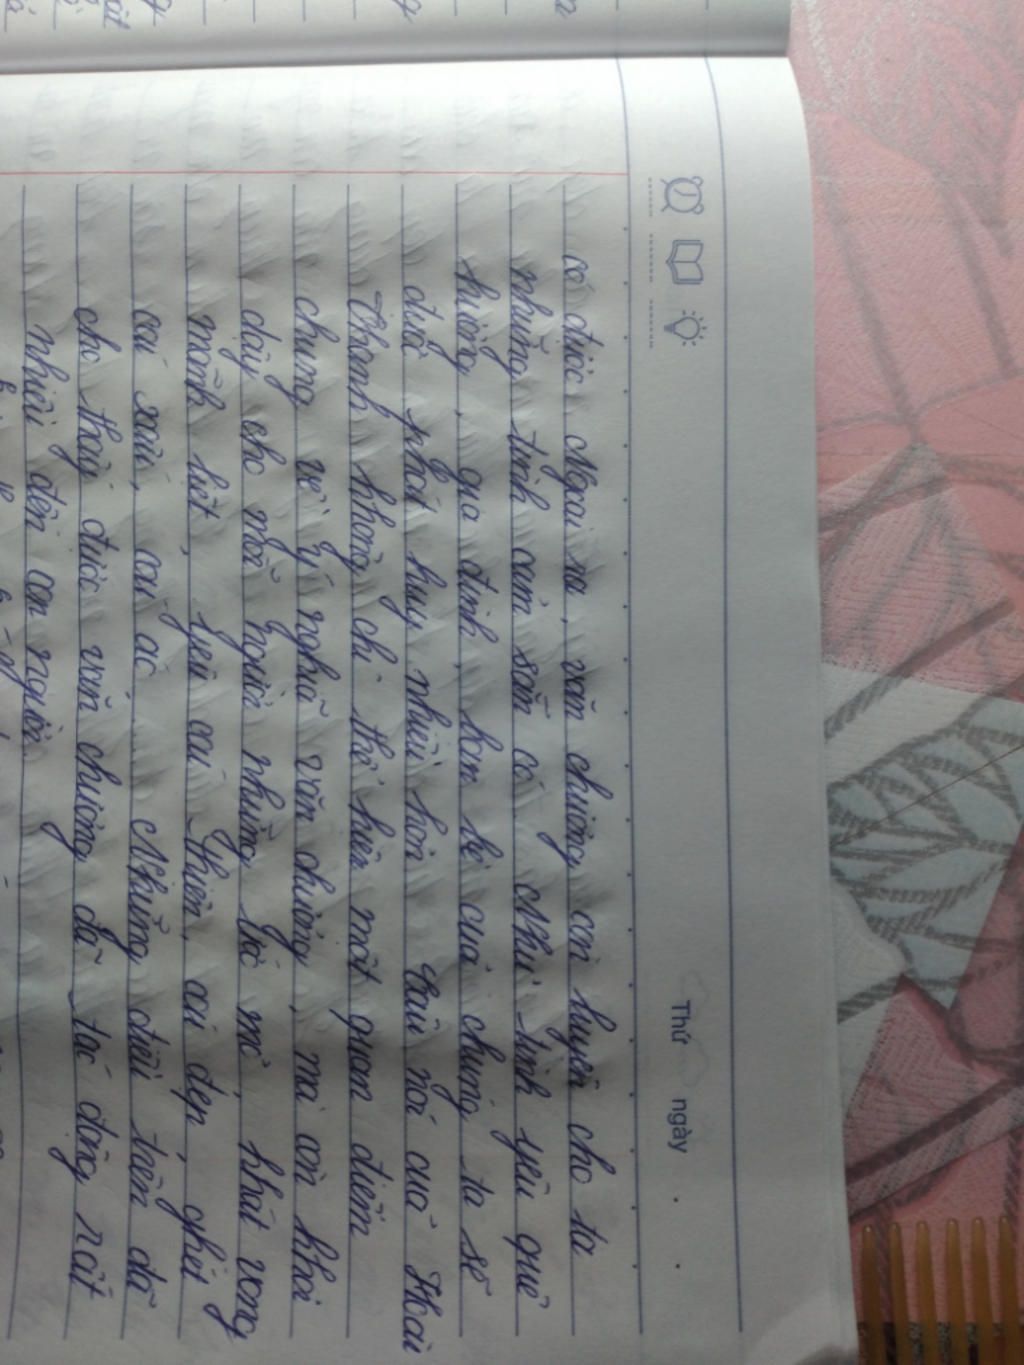 Thứ ngày . .
có được. Ngoài ra, văn chương còn luyện cho ta
những tình cảm sẵn có. Như tình yêu quê
hương, gia đình, bạn bè của chúng ta sẽ
được phát huy nhiều hơn. Câu nói của Hoài
Thanh không chỉ thể hiện một quan điểm
chung về ý nghĩa văn chương, mà còn khơi
dậy cho mỗi người những ước mơ, khát vọng
mãnh liệt, yêu cái thiện, cái đẹp, ghét
cái xấu, cái ác. Những điều trên đã
cho thấy được văn chương đã tác động rất
nhiều đến con người.